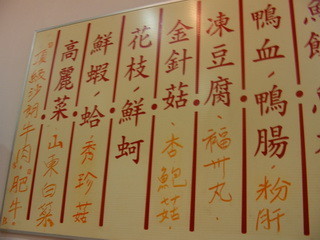 鴨血,鴨腸.粉肝
凍豆腐.福州丸
金針菇.杏鮑菇.
花枝,鮮蚵
鮮蝦,蛤.秀珍菇
高麗菜.山東白菜
頂級沙朗牛肉.肥牛